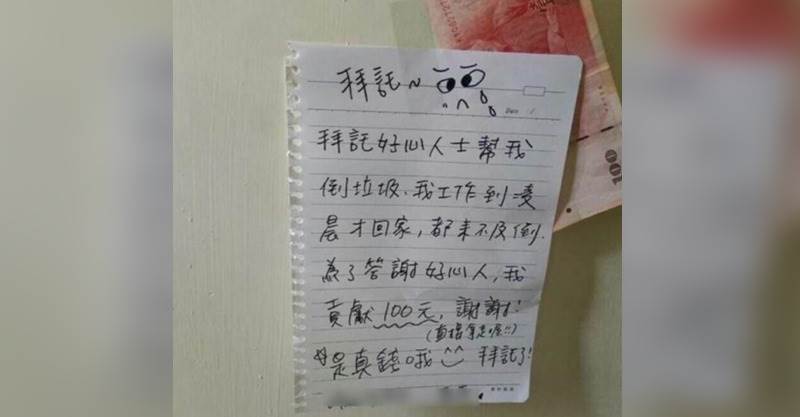 拜託~
Date
拜託好心人士幫我
倒垃圾.我工作到凌
晨才回家,都來不及倒.
為了答謝好心人,我
貢獻100元,謝謝!
(直接拿走喔!!)
是真錢哦 ^^ 拜託了!
100